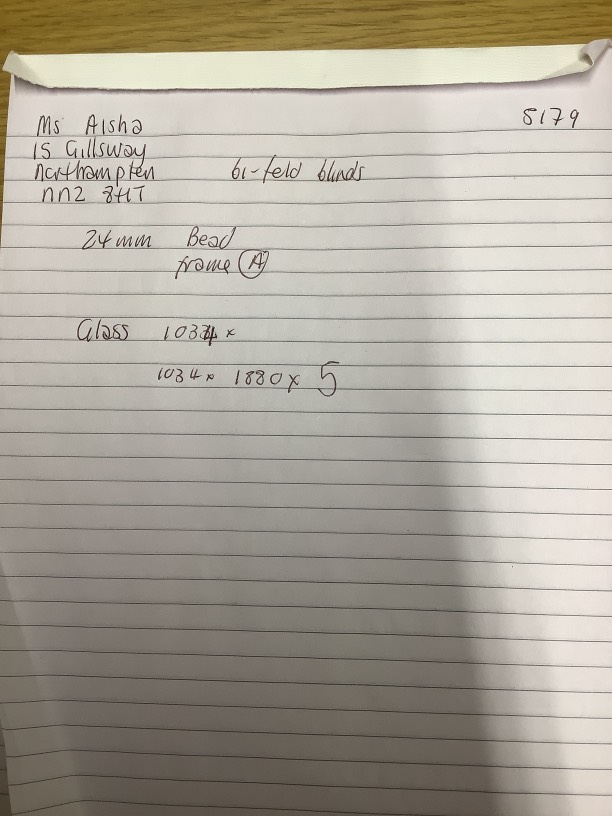 Ms Aisha
8179
15 Gillsway
northampton
bi-fold blinds
nn2 8HT
24mm Bead
frame A
Glass 1034 x
1034 x 1880 x 5